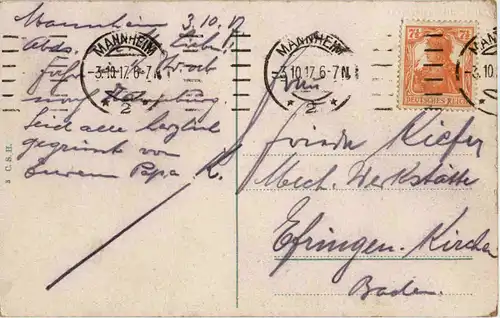 Mannheim 3.10.17
Abds. Liebe!
Fahre
noch
Seid alle herzlich
gegrüsst von
Eurem Papa K.
MANNHEIM
3.10.17.6-7 N.
* 2 *
MANNHEIM
3.10.17.6-7 N.
* 2 *
7½ 7½
DEUTSCHES REICH
Frieda Kiefer
Mech. Werkstätte
Efringen-Kirchen
Baden.
C.S.H.